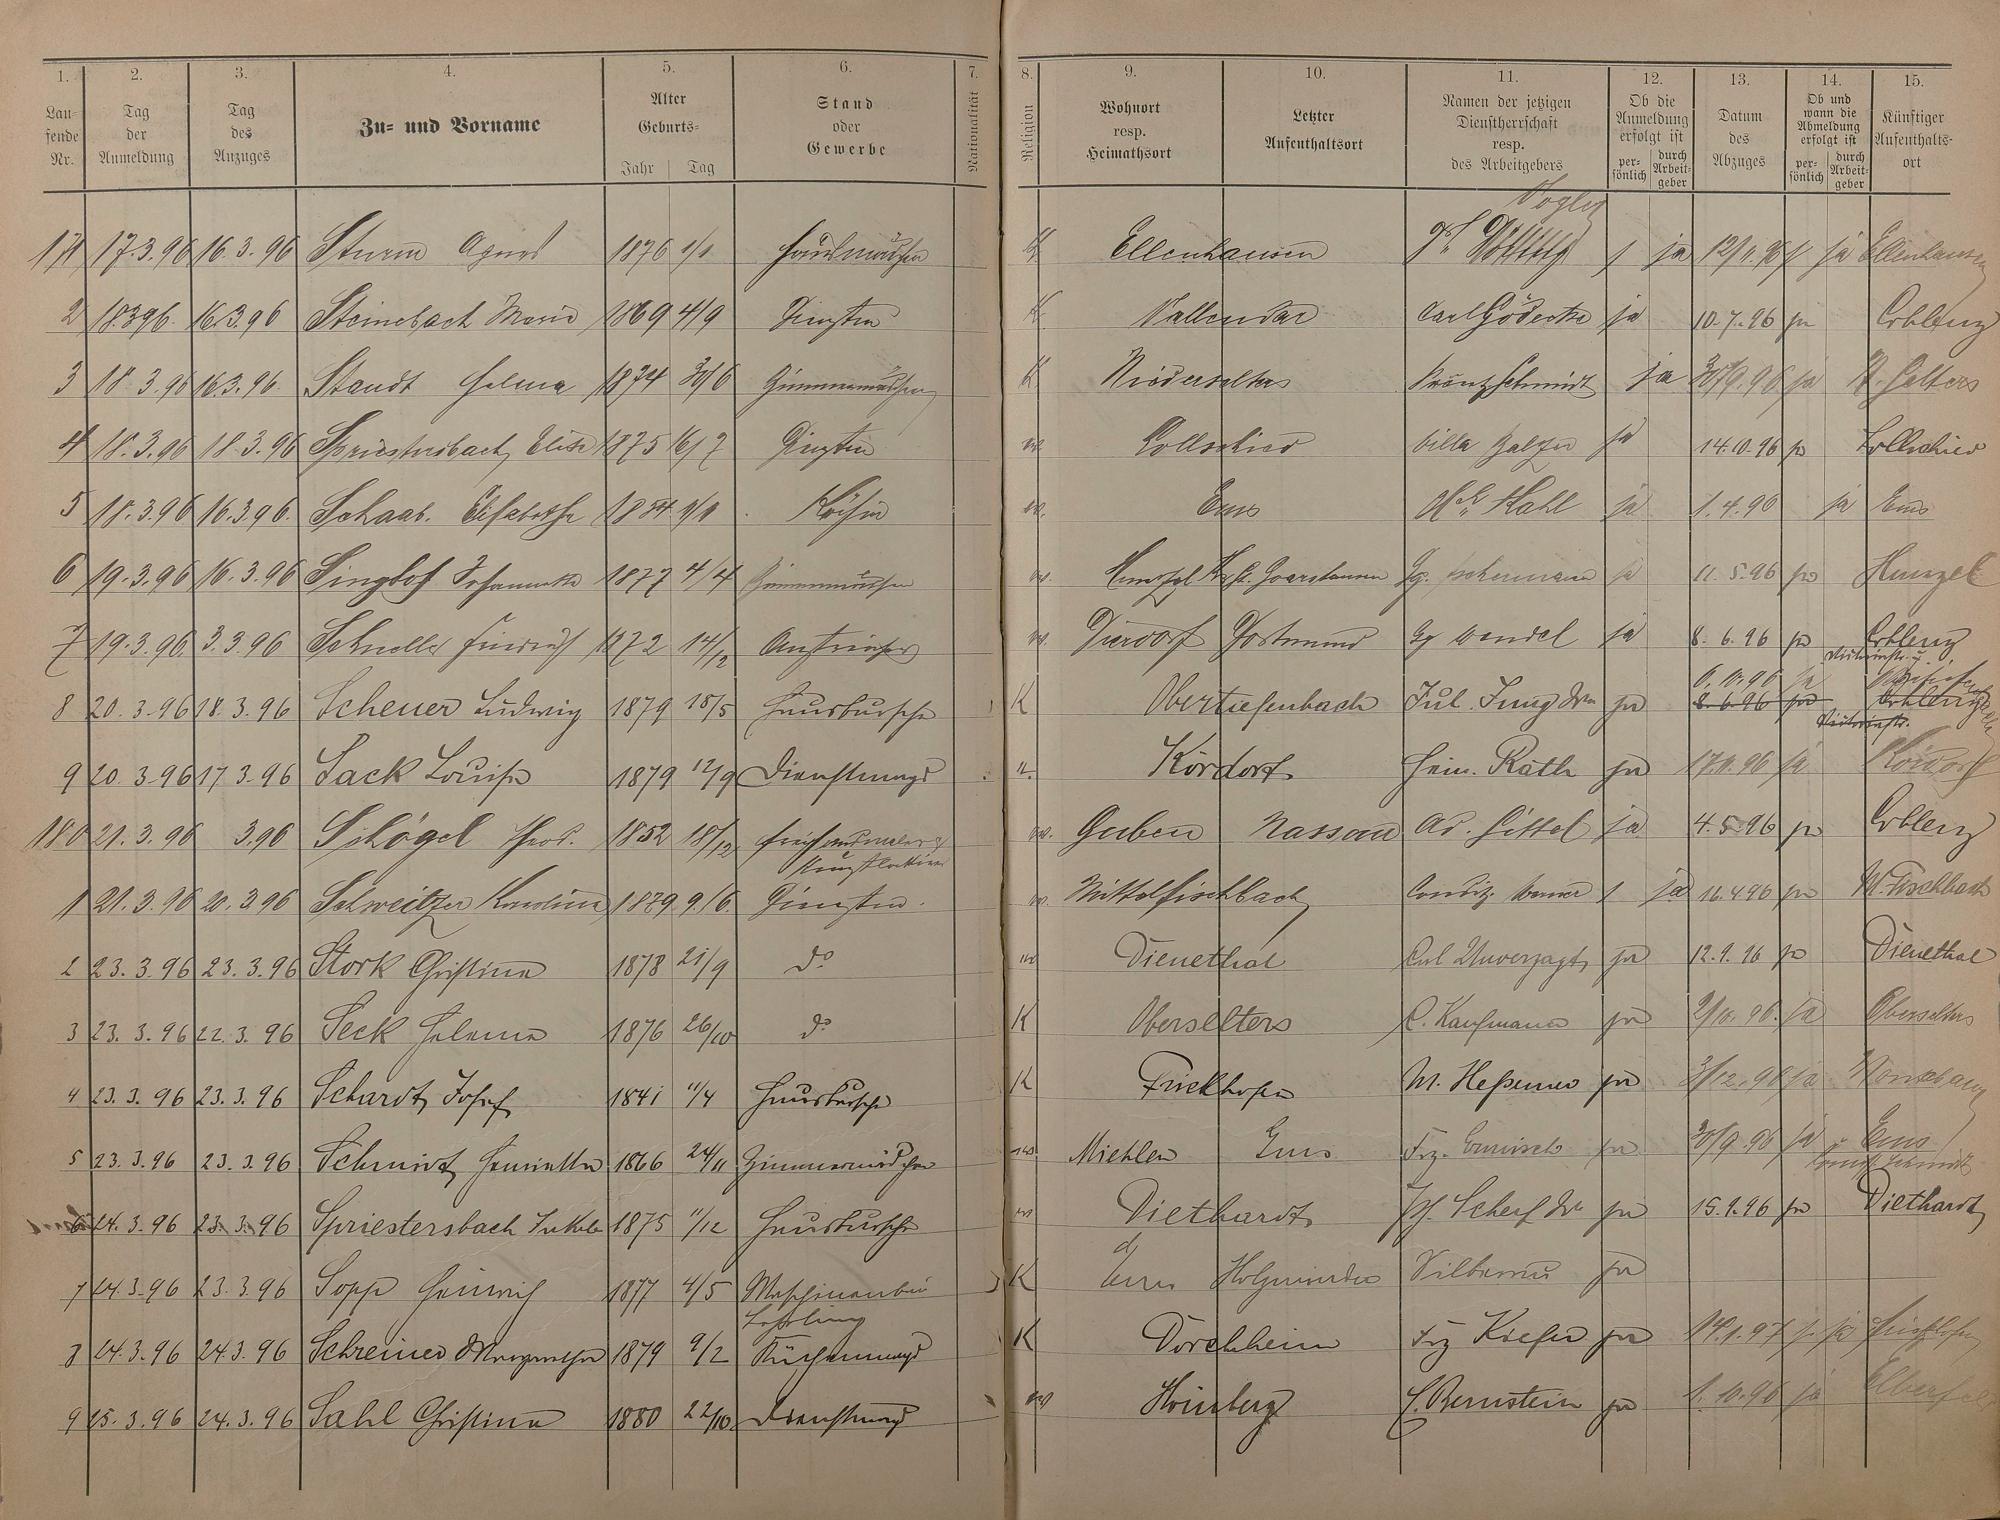 1. 2. 3. 4. 5. 6. 7. 8. 9. 10. 11. 12. 13. 14. 15.
Lau-
fende
Nr.
Tag
der
Anmeldung
Tag
des
Anzuges
Zu- und Vorname
Alter
Geburts-
Jahr Tag
Stand
oder
Gewerbe
Nationalität
Religion
Wohnort
resp.
Heimathsort
Letzter
Aufenthaltsort
Namen der jetzigen
Dienstherrschaft
resp.
des Arbeitgebers
Ob die
Anmeldung
erfolgt ist
per-
sönlich
durch
Arbeit-
geber
Datum
des
Abzuges
Ob und
wann die
Abmeldung
erfolgt ist
per-
sönlich
durch
Arbeit-
geber
Künftiger
Aufenthalts-
ort
Vogler
17.3.96 16.3.96 Sturm Agnes 1876 1/1 Hausmädchen K Ellenhausen ja ja Ellenhausen
2 18.3.96 16.3.96 Steinebach Maria 1869 4/9 K Vallendar Carl Gödecke ja 10.7.96 ja Coblenz
3 18.3.96 16.3.96 Staudt Helena 1874 30/6 Zimmermädchen K Niederselters Schmidt ja 30/9.96 ja N. Selters
4 18.3.96 18.3.96 Spriestersbach, Elise 1875 16/7 w. Lollschied Villa Balzer ja 14.10.96 ja Lollschied
5 18.3.96 16.3.96 Schaab. Elisabetha 1/1 Köchin w. Ems Kahl ja 1.4.96 ja Ems
6 19.3.96 16.3.96 Singhof Johannette 1877 4/4 Zimmermädchen w. St. Goarshausen ja 11.5.96 ja Hunzel
7 19.3.96 3.3.96 Schneller 1872 14/12 Anstreicher w. Dierdorf Dortmund Wendel ja 8.6.96 ja Coblenz
8 20.3.96 18.3.96 Scheuer Ludwig 1879 18/5 Hausbursche K Obertiefenbach Jul. Jung Ww ja 8.6.96 ja Coblenz
9 20.3.96 17.3.96 Sack Louise 1879 12/9 Dienstmagd Kördorf Heinr. Rath ja ja Kördorf
180 21.3.96 3.96 Schögel 1852 18/12 w. Guben Nassau Ad. Hittel ja 4.5.96 ja Coblenz
1 21.3.96 20.3.96 Schweitzer Karolina 1879 9/6. w. Mittelfischbach Werner ja 16.4.96 ja M. Fischbach
2 23.3.96 23.3.96 Stork Christina 1878 21/9 do w Dienethal Carl Unverzagt ja 12.9.96 ja Dienethal
3 23.3.96 22.3.96 Seck Helena 1876 26/10 do K Oberselters C. Kaufmann ja 2/10.96. ja Oberselters
4 23.3.96 23.3.96 Schardt, Josef 1841 11/4 Hausbursche K Frickhofen M. Heßemer ja 3/12.96 ja
5 23.3.96 23.3.96 Schmidt, Henriette 1866 24/11 Zimmermädchen w Miehlen Ems Frz. ja 30/9.96 ja Ems
Schmidt
6 24.3.96 23.3.96 Spriestersbach Jakob 1875 11/12 Hausbursche w Diethardt Scherf Ww ja 15.9.96 ja Diethardt
7 24.3.96 23.3.96 Sopp Heinrich 1877 4/5 Maschinenbau K Ems Holzminden Silbernau ja
Lehrling
8 24.3.96 24.3.96 Schreiner Margaretha 1879 9/2 Küchenmagd K Dorchheim Frz Kiefer ja 14.1.97 ja
9 25.3.96 24.3.96 Sahl Christina 1880 22/10. Dienstmagd w Hömberg C. Bernstein ja 1.10.96 ja Elberfeld